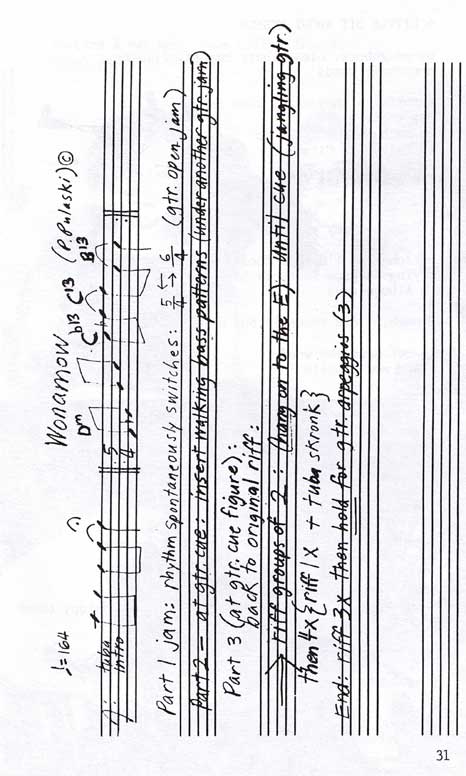 Wonamow (P. Pulaski) ©
♩=164
Dm C♭13 C13 B13
tuba
intro
5
4
Part 1 jam: rhythm spontaneously switches: 5/4 ↔ 6/4 (gtr. open jam)
Part 2 – at gtr. cue: insert walking bass patterns (under another gtr. jam)
Part 3 (at gtr. cue figure):
back to original riff:
→ riff groups of 2: (hang on to the E) until cue (jangling gtr.)
then 4x {riff 1x + tuba skronk}
End: riff 3x then hold for gtr. arpeggios (3)
31